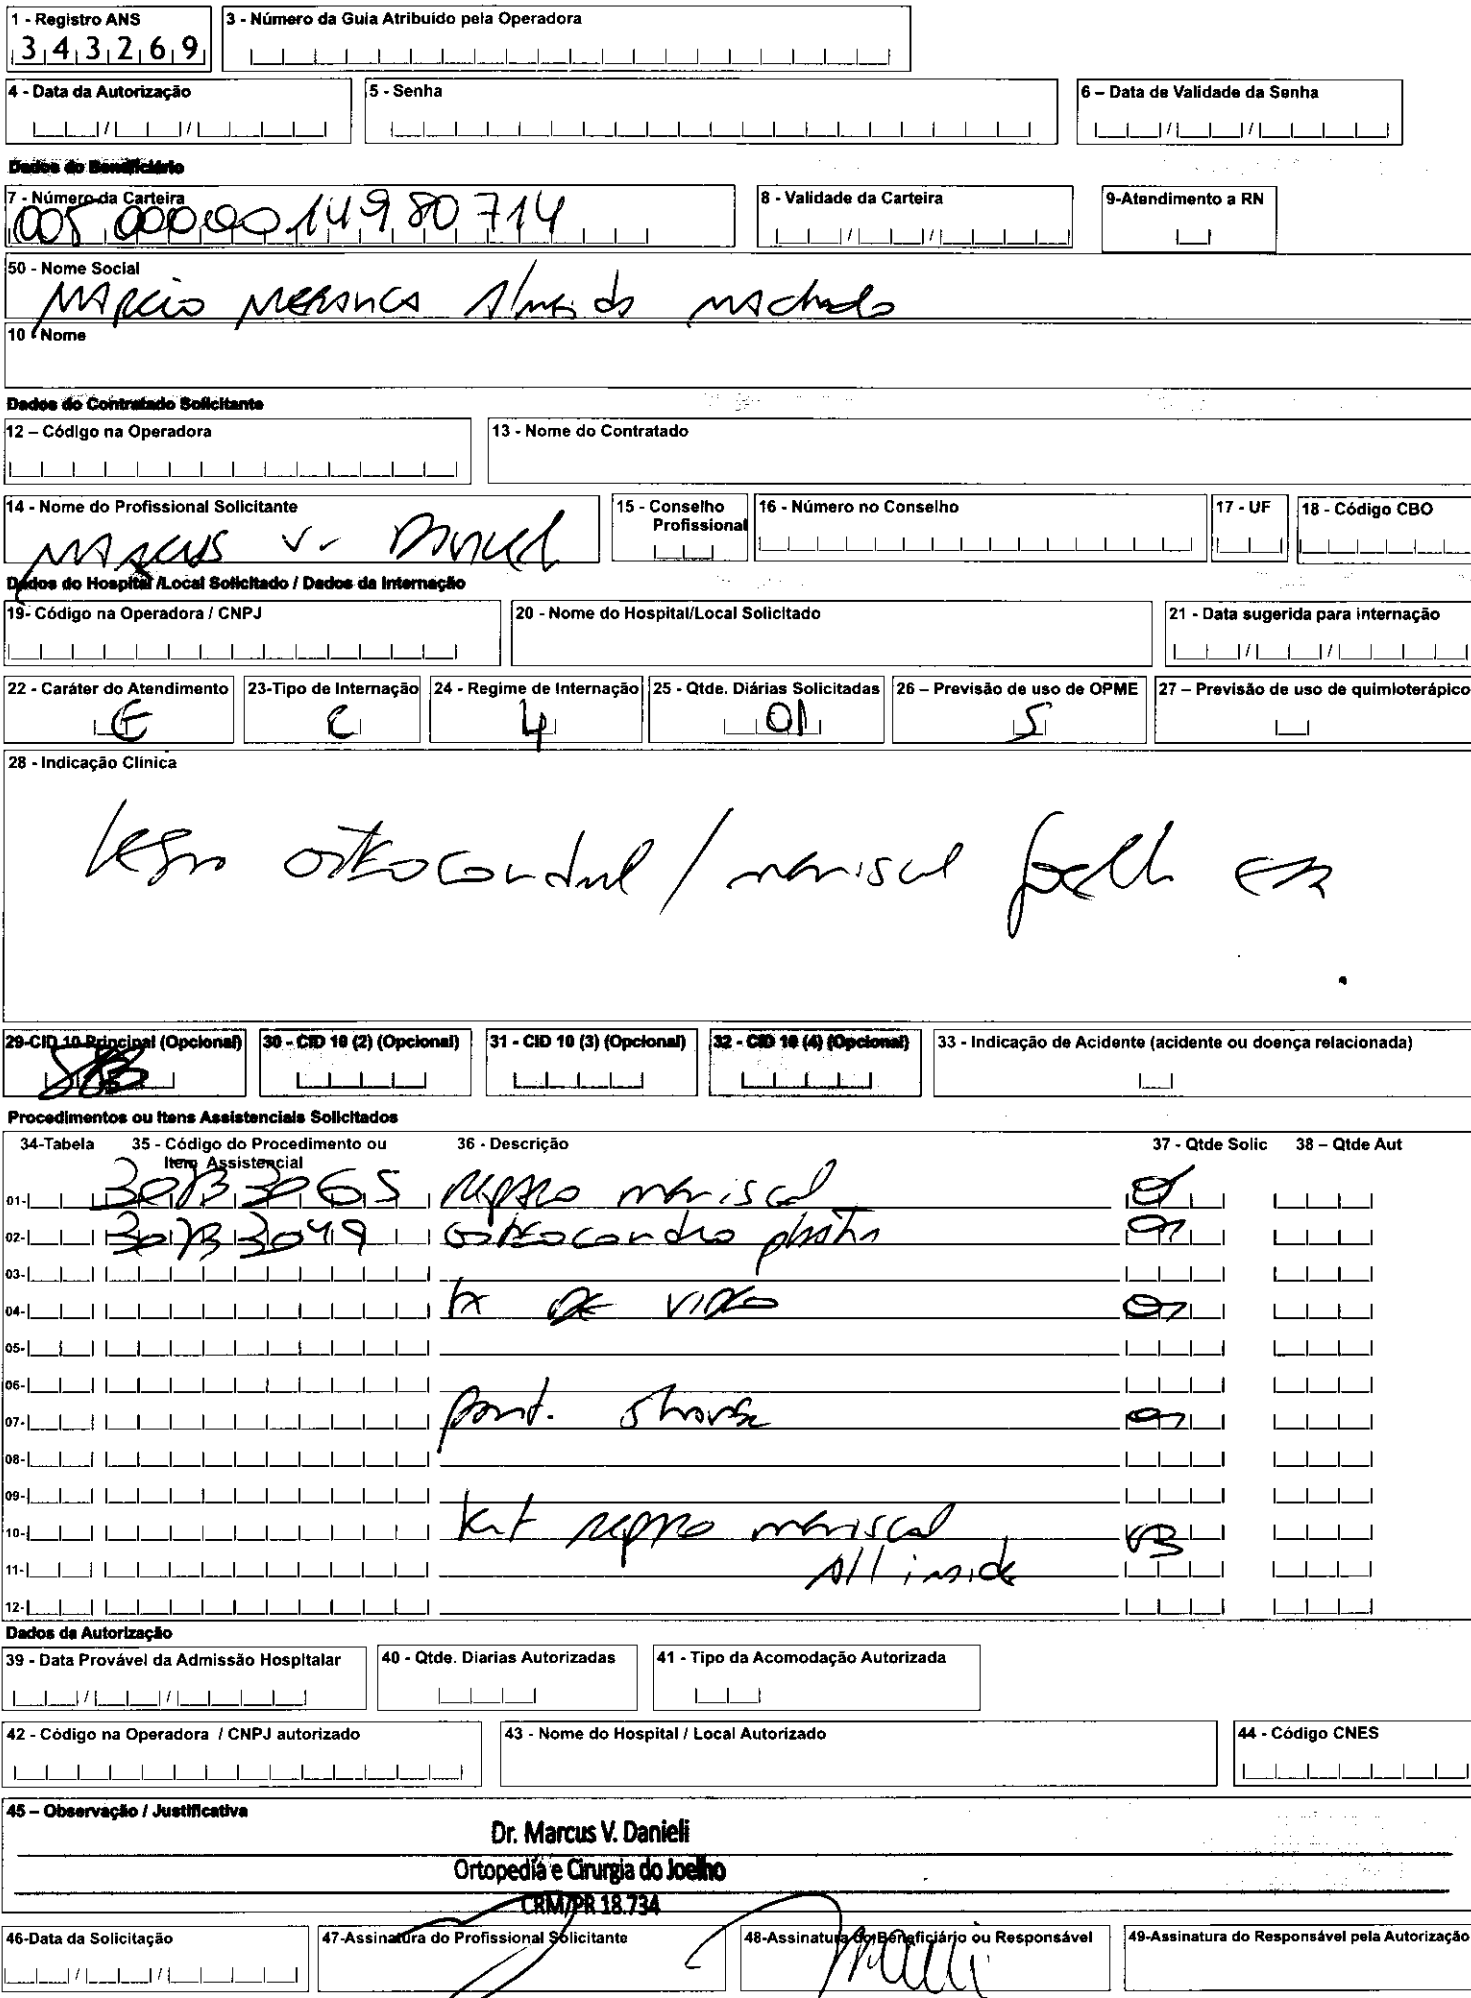 1 - Registro ANS
343269
3 - Número da Guia Atribuído pela Operadora
4 - Data da Autorização
5 - Senha
6 – Data de Validade da Senha
Dados do Beneficiário
7 - Número da Carteira
005 0000014980714
8 - Validade da Carteira
9-Atendimento a RN
50 - Nome Social
Marcio Almeida Machado
10 - Nome
Dados do Contratado Solicitante
12 – Código na Operadora
13 - Nome do Contratado
14 - Nome do Profissional Solicitante
Marcus V. Danieli
15 - Conselho Profissional
16 - Número no Conselho
17 - UF
18 - Código CBO
Dados do Hospital /Local Solicitado / Dados da Internação
19- Código na Operadora / CNPJ
20 - Nome do Hospital/Local Solicitado
21 - Data sugerida para internação
22 - Caráter do Atendimento
E
23-Tipo de Internação
C
24 - Regime de Internação
4
25 - Qtde. Diárias Solicitadas
01
26 – Previsão de uso de OPME
S
27 – Previsão de uso de quimioterápico
28 - Indicação Clínica
lesão osteocondral / meniscal joelho
29-CID 10 Principal (Opcional)
30 - CID 10 (2) (Opcional)
31 - CID 10 (3) (Opcional)
32 - CID 10 (4) (Opcional)
33 - Indicação de Acidente (acidente ou doença relacionada)
Procedimentos ou Itens Assistenciais Solicitados
34-Tabela
35 - Código do Procedimento ou
Item Assistencial
36 - Descrição
37 - Qtde Solic
38 – Qtde Aut
01- 30733065 reparo meniscal 01
02- 30733049 osteocondroplastia 01
03-
04- tx de video 01
05-
06-
07- pont. shaver 01
08-
09-
10- kit reparo meniscal 03
11- all inside
12-
Dados da Autorização
39 - Data Provável da Admissão Hospitalar
40 - Qtde. Diarias Autorizadas
41 - Tipo da Acomodação Autorizada
42 - Código na Operadora / CNPJ autorizado
43 - Nome do Hospital / Local Autorizado
44 - Código CNES
45 – Observação / Justificativa
Dr. Marcus V. Danieli
Ortopedia e Cirurgia do Joelho
CRM/PR 18.734
46-Data da Solicitação
47-Assinatura do Profissional Solicitante
48-Assinatura do Beneficiário ou Responsável
49-Assinatura do Responsável pela Autorização